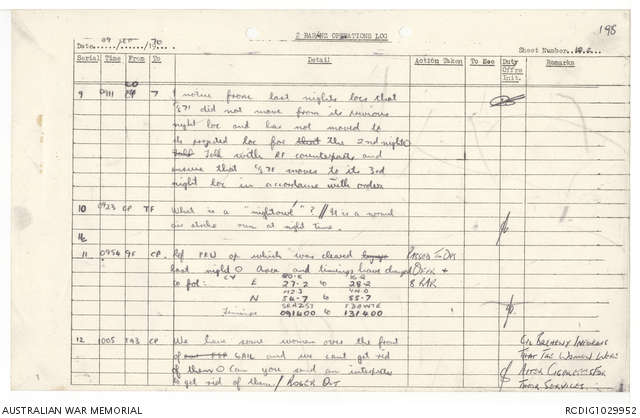 198
2 RAR/NZ OPERATIONS LOG
Date 09 / SEP / 1970
Sheet Number
Serial Time From To Detail Action Taken To Exec Duty Offrs Init. Remarks
9 0911 CO 7 I notice from last nights locs that
71 did not move from its previous
night loc and has not moved to
its projected loc for the 2nd night
Talk with RF counterparts and
ensure that 71 moves to its 3rd
night loc in accordance with orders
10 0923 CP TF What is a "nightowl"? // It is a normal
air strike run at night time.
11 0954 9F CP Ref PRU op which was cleared
last night O Area and timings have changed
to fol: E 27.2 to 28.2
N 54.7 to 55.7
Timings 091600 to 131600
PASSED TO OPS
OFFR +
8 RAR
12 1005 TA3 CP We have some women over the front
of GAIL and we cant get rid
of them O Can you send an interpreter
to get rid of them / ROGER OUT
CPL BREHENY INFORMS
THAT THE WOMEN WERE
AFTER CIGARETTES FOR
THEIR SERVICES.
AUSTRALIAN WAR MEMORIAL
RCDIG1029952